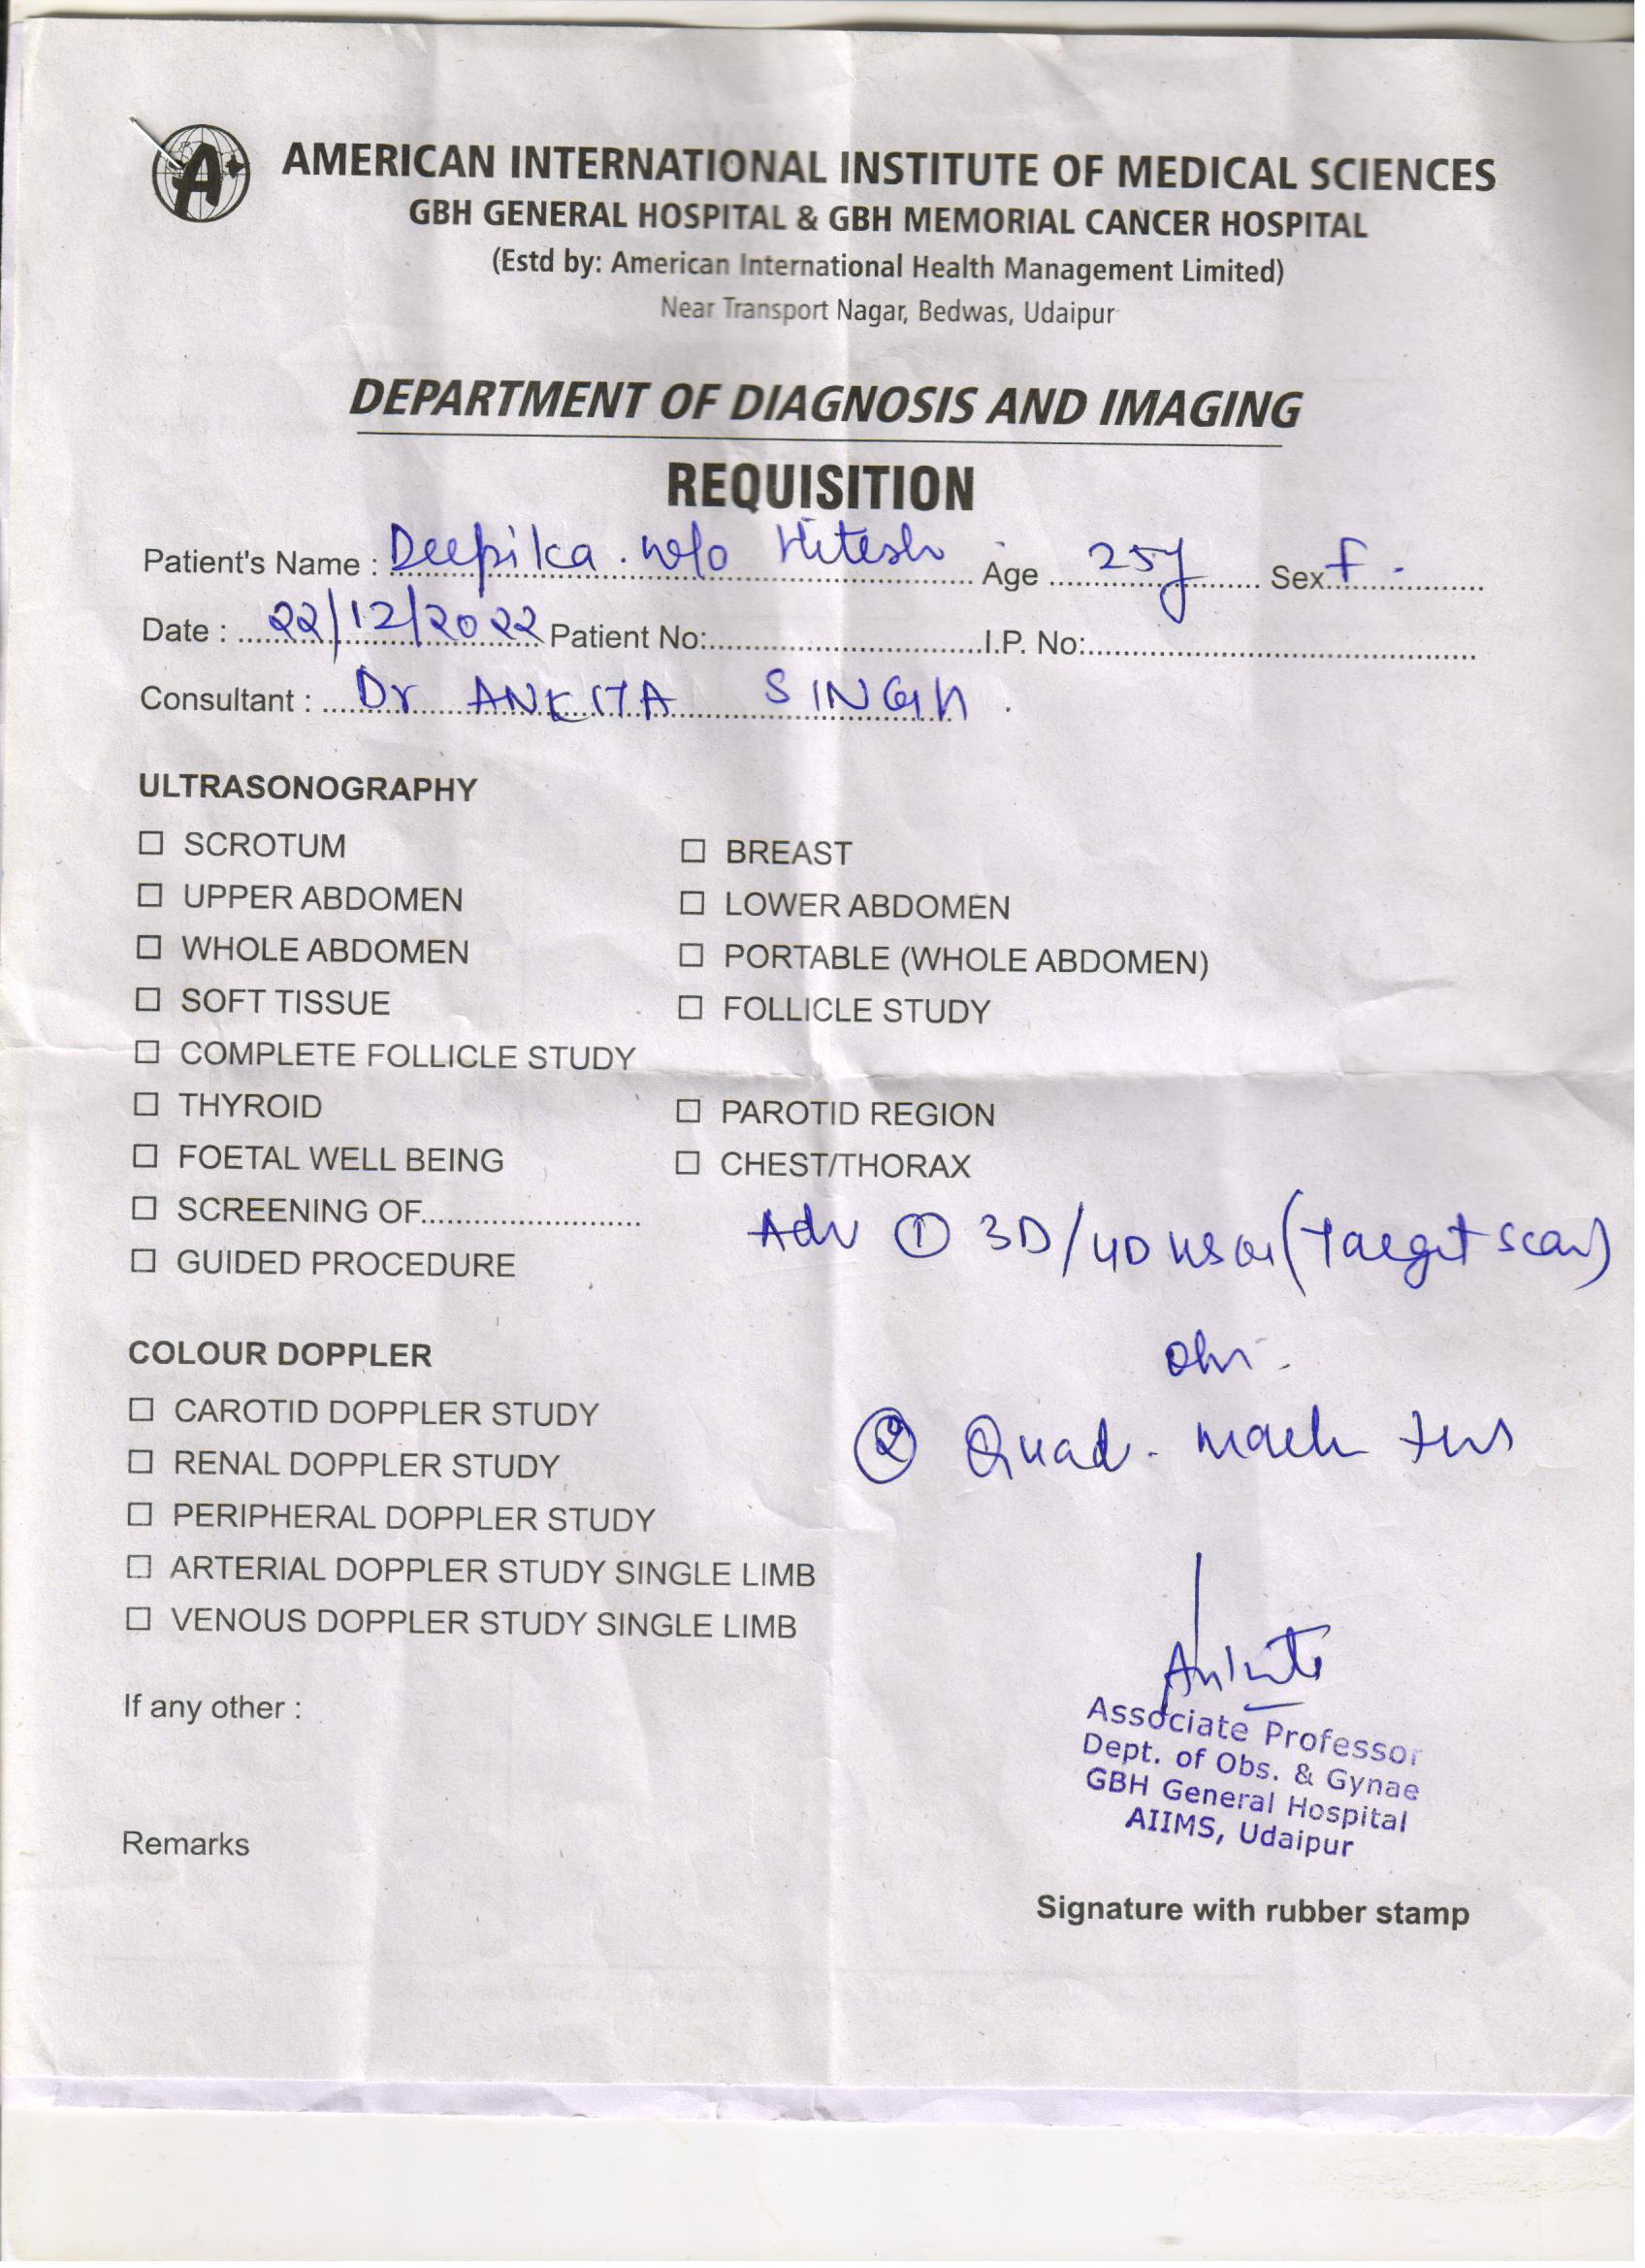 A+
AMERICAN INTERNATIONAL INSTITUTE OF MEDICAL SCIENCES
GBH GENERAL HOSPITAL & GBH MEMORIAL CANCER HOSPITAL
(Estd by: American International Health Management Limited)
Near Transport Nagar, Bedwas, Udaipur
DEPARTMENT OF DIAGNOSIS AND IMAGING
REQUISITION
Patient's Name : Deepika. w/o Hitesh Age 25y Sex F.
Date : 22/12/2022 Patient No: I.P. No:
Consultant : Dr ANKITA SINGH
ULTRASONOGRAPHY
☐ SCROTUM ☐ BREAST
☐ UPPER ABDOMEN ☐ LOWER ABDOMEN
☐ WHOLE ABDOMEN ☐ PORTABLE (WHOLE ABDOMEN)
☐ SOFT TISSUE ☐ FOLLICLE STUDY
☐ COMPLETE FOLLICLE STUDY
☐ THYROID ☐ PAROTID REGION
☐ FOETAL WELL BEING ☐ CHEST/THORAX
☐ SCREENING OF
Adv ① 3D/4D USG (Target scan)
☐ GUIDED PROCEDURE
COLOUR DOPPLER
☐ CAROTID DOPPLER STUDY
② Quad.
☐ RENAL DOPPLER STUDY
☐ PERIPHERAL DOPPLER STUDY
☐ ARTERIAL DOPPLER STUDY SINGLE LIMB
☐ VENOUS DOPPLER STUDY SINGLE LIMB
Ankita
If any other :
Associate Professor
Dept. of Obs. & Gynae
GBH General Hospital
AIIMS, Udaipur
Remarks
Signature with rubber stamp